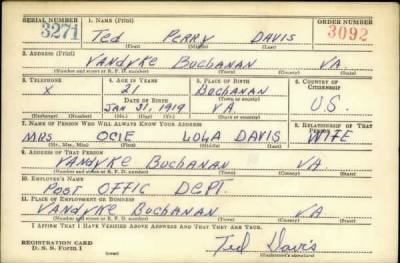 SERIAL NUMBER 1. NAME (Print) ORDER NUMBER
3271 Ted PERRY DAVIS 3092
(First) (Middle) (Last)
2. ADDRESS (Print)
VANDYKE BUCHANAN VA
(Number and street or R. F. D. number) (Town) (County) (State)
3. TELEPHONE 4. AGE IN YEARS 5. PLACE OF BIRTH 6. COUNTRY OF CITIZENSHIP
X 21 BUCHANAN
DATE OF BIRTH (Town or county) U.S.
JAN 31, 1919 VA.
(Exchange) (Number) (Mo.) (Day) (Yr.) (State or country)
7. NAME OF PERSON WHO WILL ALWAYS KNOW YOUR ADDRESS 8. RELATIONSHIP OF THAT PERSON
MRS. OCIE LOLA DAVIS WIFE
(Mr., Mrs., Miss) (First) (Middle) (Last)
9. ADDRESS OF THAT PERSON
VANDYKE BUCHANAN VA
(Number and street or R. F. D. number) (Town) (County) (State)
10. EMPLOYER'S NAME
POST OFFIC DEPT.
11. PLACE OF EMPLOYMENT OR BUSINESS
VANDYKE BUCHANAN VA
(Number and street or R. F. D. number) (Town) (County) (State)
I AFFIRM THAT I HAVE VERIFIED ABOVE ANSWERS AND THAT THEY ARE TRUE.
REGISTRATION CARD Ted Davis
D. S. S. Form 1 (over) (Registrant's signature)